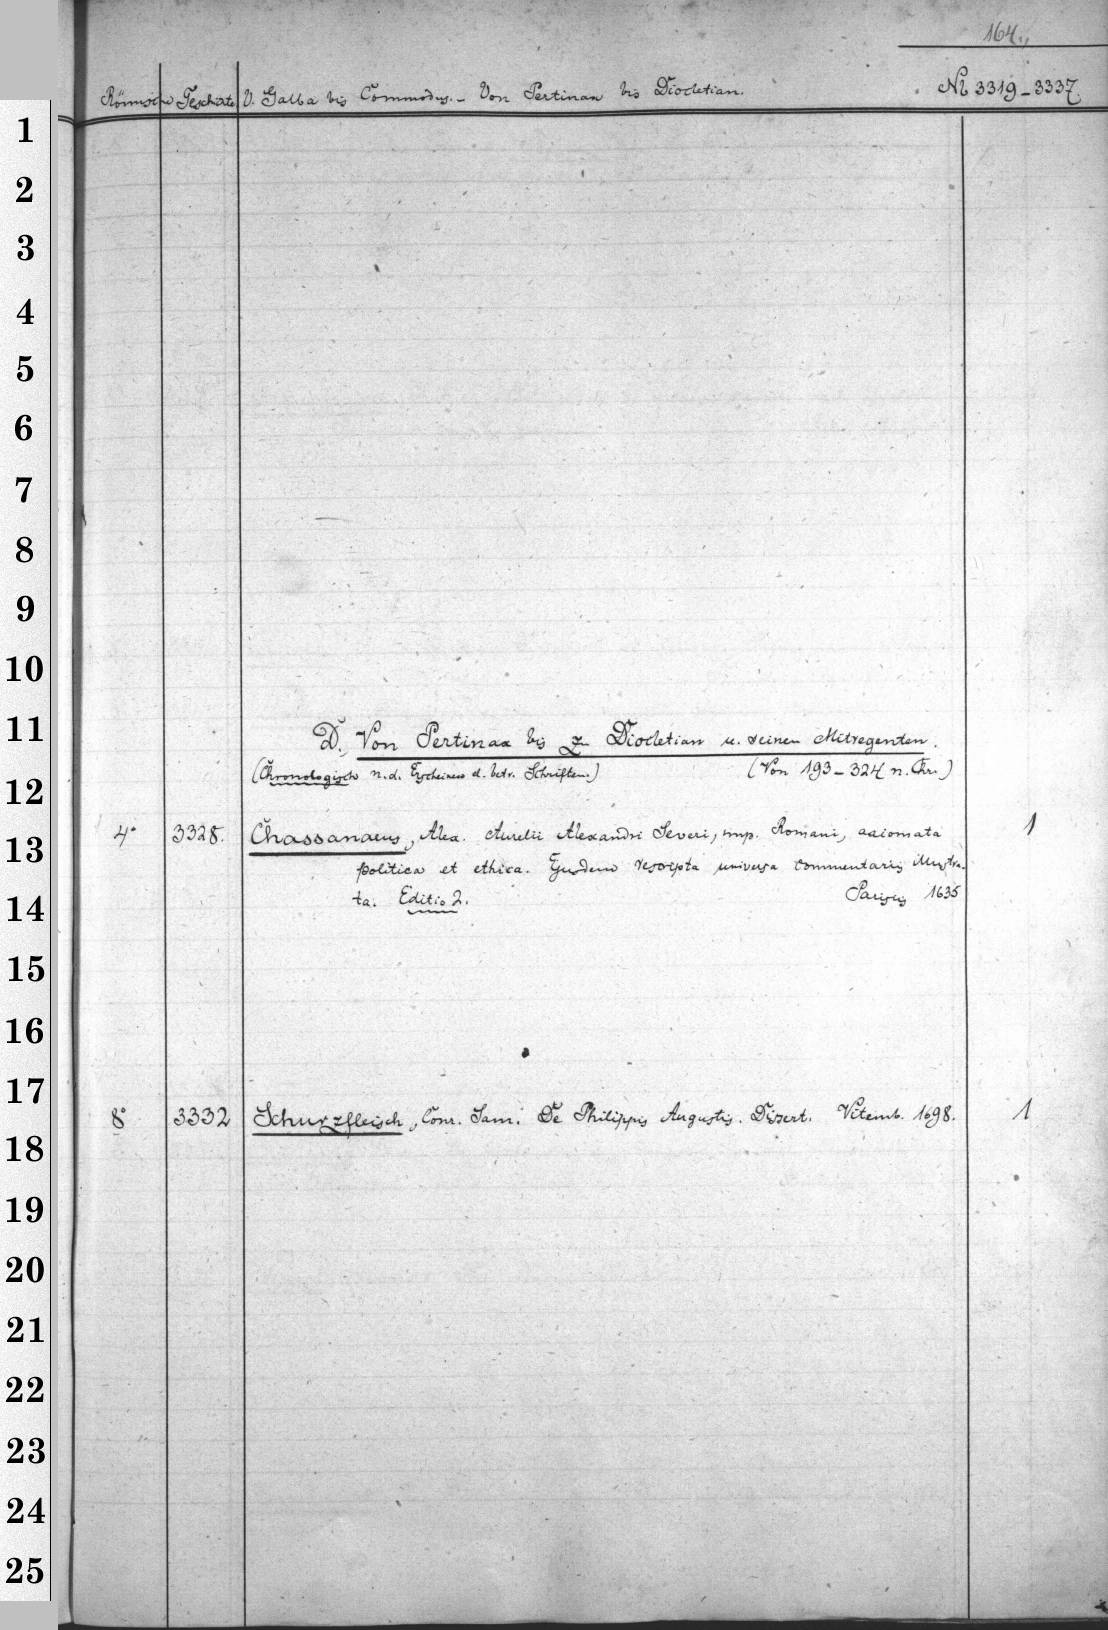 164.
Römische Geschichte V. Galba bis Commodus. - Von Pertinax bis Diocletian. № 3319-3337.
1
2
3
4
5
6
7
8
9
10
11
D. Von Pertinax bis zu Diocletian u. seinen Mitregenten.
(Chronologisch n. d. Erscheinen d. betr. Schriften.) (Von 193-324 n. Chr.)
12
4° 3328. Chassanaeus, Alex. Aurelii Alexandri Severi, imp. Romani, axiomata 1
13
politica et ethica. Ejusdem rescripta universa commentariis illustra-
ta. Editio 2. Parisiis 1635
14
15
16
17
8° 3332 Schurzfleisch, Conr. Sam. De Philippis Augustis. Dissert. Vitemb. 1698. 1
18
19
20
21
22
23
24
25